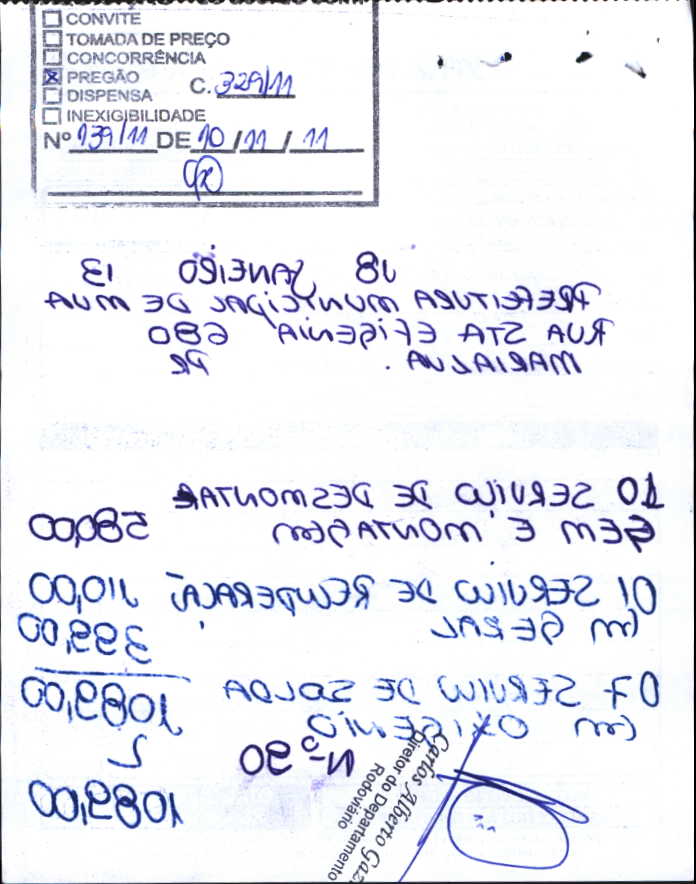 CONVITE
TOMADA DE PREÇO
CONCORRÊNCIA
PREGÃO C. 329/11
DISPENSA
INEXIGIBILIDADE
Nº 139/11 DE 10 / 11 / 11
18 JANEIRO 13
PREFEITURA MUNICIPAL DE MUA
RUA STA EFIGENIA 680
MARIALVA . PR
10 SERVIÇO DE DESMONTA
GEM E MONTAGEM 580,00
01 SERVIÇO DE RECUPERAÇÃ 110,00
EM GERAL 399,00
07 SERVIÇO DE SOLDA 1089,00
EM OXIGENIO
Nº 90
1089,00
Carlos Alberto
Diretor do Departamento
Rodoviário